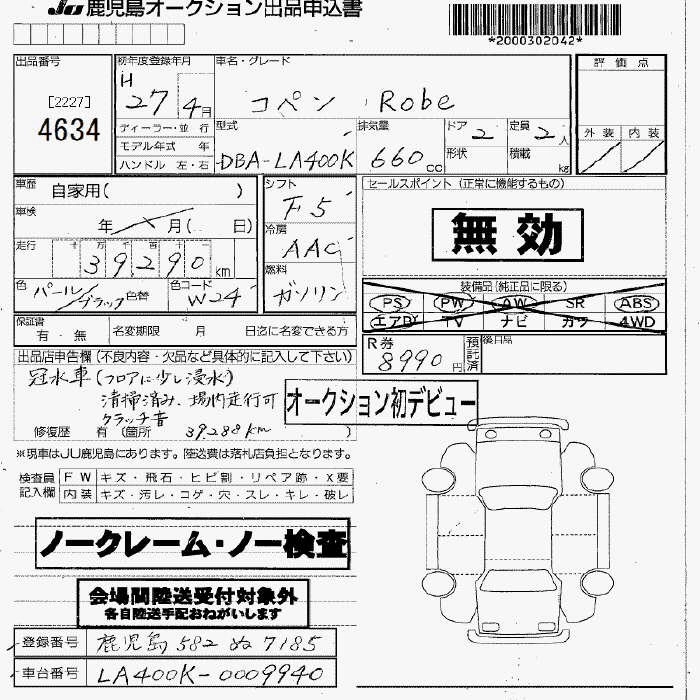 JU 鹿児島オークション出品申込書
*2000302042*
出品番号
[2227]
4634
初年度登録年月
H
27 4月
車名・グレード
コペン Robe
評価点
外装 内装
ディーラー・並行
モデル年式 年
ハンドル 左・右
型式
DBA-LA400K
排気量
660cc
ドア 2
形状
定員 2人
積載 kg
車歴 自家用( )
車検 年 月( 日)
走行 十 万 千 百 十 一
39290km
色 パール/ブラック 色替
色コード W24
シフト
F5
冷房
AAC
燃料
ガソリン
セールスポイント (正常に機能するもの)
無効
装備品(純正品に限る)
PS PW AW SR ABS
エアB TV ナビ カワ 4WD
保証書
有・無
名変期限 月 日迄に名変できる方
R券
8990円
預託済
後日品
出品店申告欄(不良内容・欠品など具体的に記入して下さい)
冠水車(フロアに少し浸水)
清掃済み、場内走行可
クラッチ音
修復歴 有(箇所 39288km
オークション初デビュー
※現車はJU鹿児島にあります。陸送費は落札店負担となります。
検査員記入欄
FW キズ・飛石・ヒビ割・リペア跡・X要
内装 キズ・汚レ・コゲ・穴・スレ・キレ・破レ
ノークレーム・ノー検査
会場間陸送受付対象外
各自陸送手配おねがいします
登録番号 鹿児島 582 ぬ 7185
車台番号 LA400K-0009940